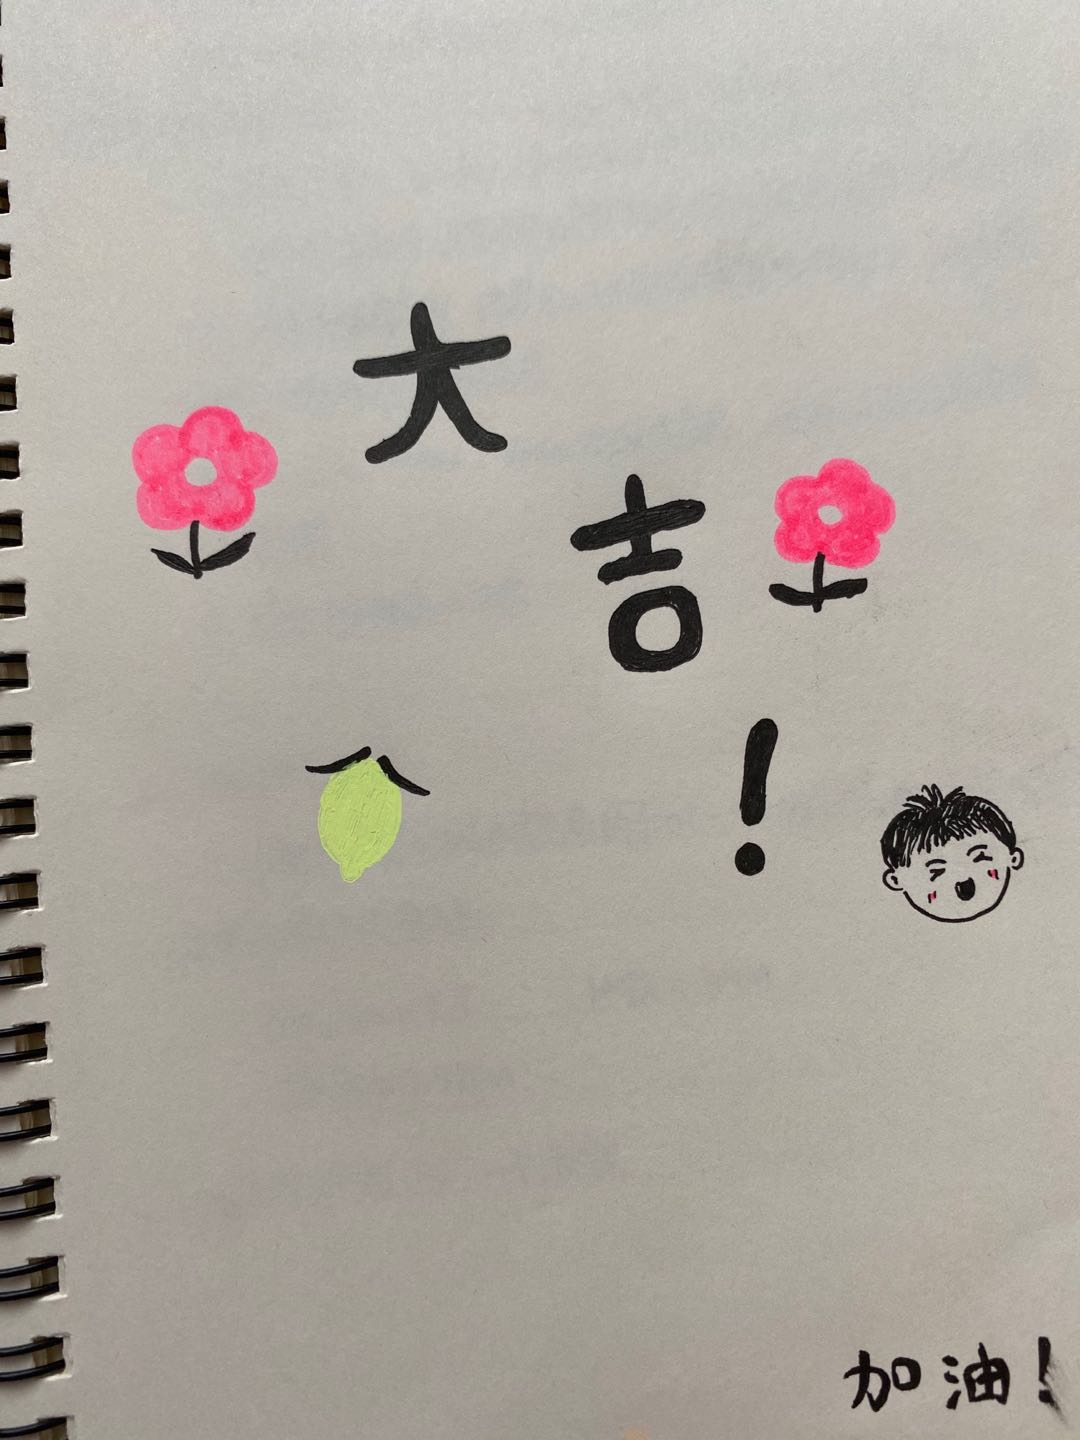 大
吉
!
加油!